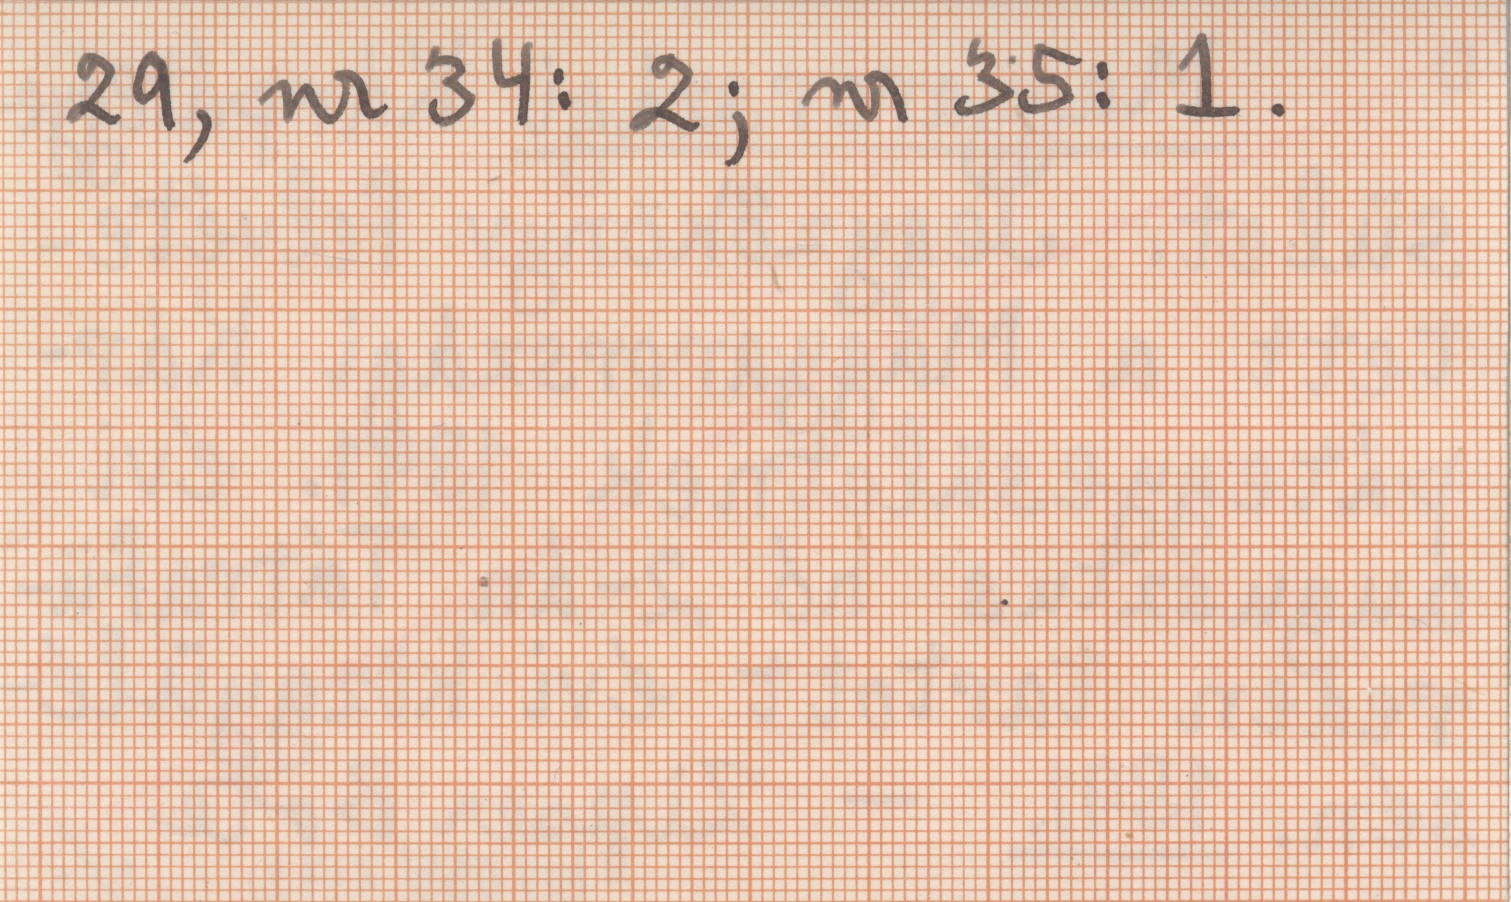 29, nr 34: 2; nr 35: 1.